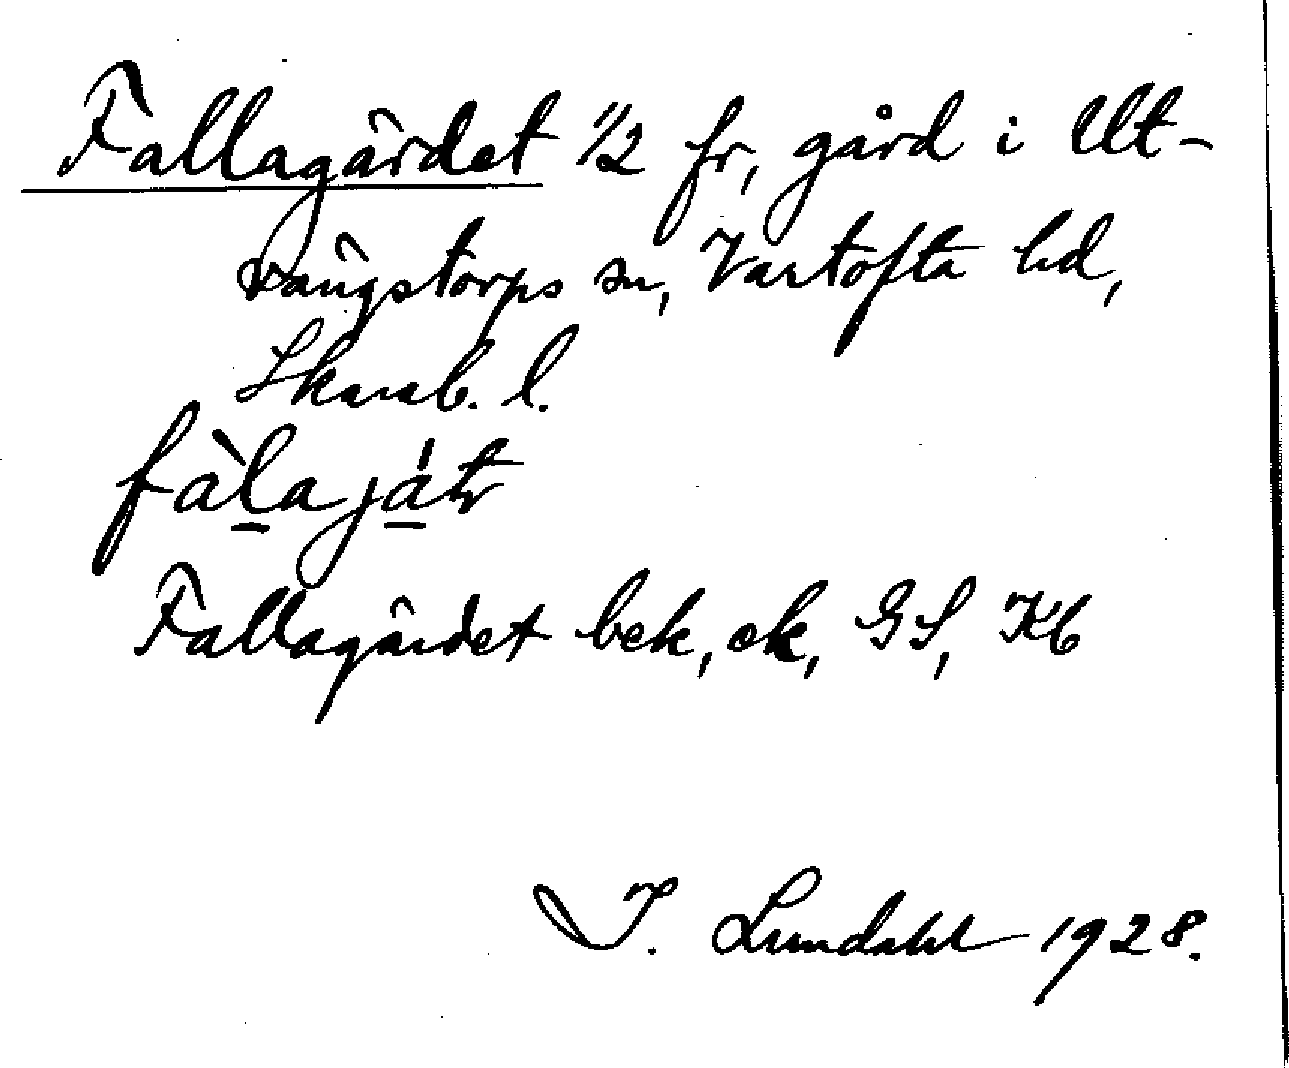 Fallagärdet 1/2 fr, gård i Ut-
vängstorps sn, Vartofta hd,
Skarab. l.
fàlajátr
Fallagärdet bek, ek, GS, Kb
I. Lundahl 1928.